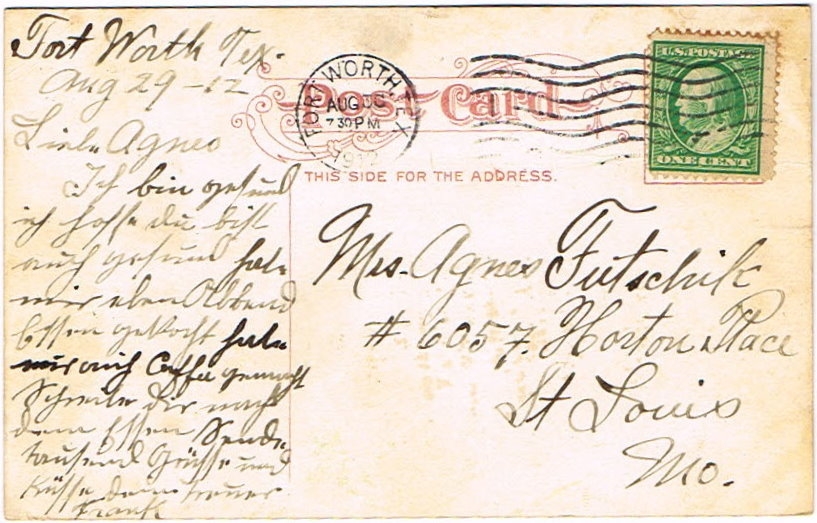 Fort Worth Tex.
Aug 29 - 12
Liebe Agnes
Ich bin gesund
ich hoffe du bist
auch gesund habe
mir eben Abbend
Essen gekocht habe
mir auch Caffe gemacht
Schreibe Dir nach
dem Essen Sende
tausend Grüsse und
Küsse dein treuer
Frank
Post Card
FORT WORTH, TEX.
AUG 30
7 30 PM
1912
U.S. POSTAGE
ONE CENT
THIS SIDE FOR THE ADDRESS.
Mrs. Agnes Futschik
# 6057. Horton Place
St Louis
Mo.